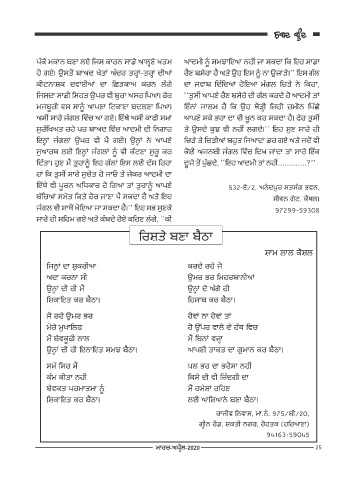 ਸ਼ਬਦ ਬੂੰਦ
ਪੱਕੇ ਮਕਾਨ ਬਣਾ ਲਏ ਜਿਸ ਕਾਰਨ ਸਾਡੇ ਆਲ੍ਹਣੇ ਖ਼ਤਮ
ਹੋ ਗਏ। ਉਸਤੋਂ ਬਾਅਦ ਖੇਤਾਂ ਅੰਦਰ ਤਰ੍ਹਾਂ-ਤਰ੍ਹਾਂ ਦੀਆਂ
ਕੀਟਨਾਸ਼ਕ ਦਵਾਈਆਂ ਦਾ ਛਿੜਕਾਅ ਕਰਨ ਲੱਗੇ
ਜਿਸਦਾ ਸਾਡੀ ਸਿਹਤ ਉਪਰ ਵੀ ਬੁਰਾ ਅਸਰ ਪਿਆ। ਫੇਰ
ਮਜਬੂਰੀ ਵਸ ਸਾਨੂੰ ਆਪਣਾ ਟਿਕਾਣਾ ਬਦਲਣਾ ਪਿਆ।
ਅਸੀਂ ਸਾਰੇ ਜੰਗਲ ਵਿੱਚ ਆ ਗਏ। ਇੱਥੇ ਅਸੀਂ ਕਾਫੀ ਸਮਾਂ
ਸੁਰੱਖਿਅਤ ਰਹੇ ਪਰ ਬਾਅਦ ਵਿੱਚ ਆਦਮੀ ਦੀ ਨਿਗਾਹ
ਇਨ੍ਹਾਂ ਜੰਗਲਾਂ ਉਪਰ ਵੀ ਪੈ ਗਈ। ਉਨ੍ਹਾਂ ਨੇ ਆਪਣੇ
ਸੁਆਰਥ ਲਈ ਇਨ੍ਹਾਂ ਜੰਗਲਾਂ ਨੂੰ ਵੀ ਕੱਟਣਾ ਸ਼ੁਰੂ ਕਰ
ਦਿੱਤਾ। ਹੁਣ ਮੈਂ ਤੁਹਾਨੂੰ ਇਹ ਗੱਲਾਂ ਇਸ ਲਈ ਦੱਸ ਰਿਹਾ
ਹਾਂ ਕਿ ਤੁਸੀਂ ਸਾਰੇ ਸੁਚੇਤ ਹੋ ਜਾਓ ਤੇ ਜੇਕਰ ਆਦਮੀ ਦਾ
ਇੱਥੇ ਵੀ ਪੂਰਨ ਅਧਿਕਾਰ ਹੋ ਗਿਆ ਤਾਂ ਤੁਹਾਨੂੰ ਆਪਣੇ
ਬੱਚਿਆਂ ਸਮੇਤ ਕਿਤੇ ਹੋਰ ਜਾਣਾ ਪੈ ਸਕਦਾ ਹੈ ਅਤੇ ਇਹ
ਜੰਗਲ ਵੀ ਸਾਥੋਂ ਖੋਇਆ ਜਾ ਸਕਦਾ ਹੈ।" ਇਹ ਸਭ ਸੁਣਕੇ
ਸਾਰੇ ਹੀ ਸਹਿਮ ਗਏ ਅਤੇ ਕੰਬਦੇ ਹੋਏ ਕਹਿਣ ਲੱਗੇ, "ਕੀ
ਆਦਮੀ ਨੂੰ ਸਮਝਾਇਆ ਨਹੀਂ ਜਾ ਸਕਦਾ ਕਿ ਇਹ ਸਾਡਾ
ਰੈਣ ਬਸੇਰਾ ਹੈ ਅਤੇ ਉਹ ਇਸ ਨੂੰ ਨਾ ਉਜਾੜੇ।" ਇਸ ਗੱਲ
ਦਾ ਜਵਾਬ ਦਿੰਦਿਆਂ ਹੋਇਆਂ ਮੰਗਲ ਚਿੜੇ ਨੇ ਕਿਹਾ,
"ਤੁਸੀਂ ਆਪਣੇ ਰੈਣ ਬਸੇਰੇ ਦੀ ਗੱਲ ਕਰਦੇ ਹੋ ਆਦਮੀ ਤਾਂ
ਇੰਨਾਂ ਜਾਲਮ ਹੈ ਕਿ ਉਹ ਥੋੜ੍ਹੀ ਜਿਹੀ ਜ਼ਮੀਨ ਪਿੱਛੇ
ਆਪਣੇ ਸਕੇ ਭਰਾ ਦਾ ਵੀ ਖੂਨ ਕਰ ਸਕਦਾ ਹੈ। ਫੇਰ ਤੁਸੀਂ
ਤੇ ਉਸਦੇ ਕੁਛ ਵੀ ਨਹੀਂ ਲਗਦੇ।" ਇਹ ਸੁਣ ਸਾਰੇ ਹੀ
ਚਿੜੇ ਤੇ ਚਿੜੀਆਂ ਬਹੁਤ ਜਿਆਦਾ ਡਰ ਗਏ ਅਤੇ ਜਦੋਂ ਵੀ
ਕੋਈ ਅਜਨਬੀ ਜੰਗਲ ਵਿੱਚ ਦਿਖ ਜਾਂਦਾ ਤਾਂ ਸਾਰੇ ਇੱਕ
ਦੂਜੇ ਤੋਂ ਪੁੱਛਦੇ, "ਇਹ ਆਦਮੀ ਤਾਂ ਨਹੀਂ.............?"
532-ਏ/2, ਅਨੰਦਪੁਰ ਸਤਸੰਗ ਭਵਨ,
ਸੀਵਨ ਗੇਟ, ਕੈਥਲ।
97299-59308
ਰਿਸ਼ਤੇ ਬਣਾ ਬੈਠਾ
ਸ਼ਾਮ ਲਾਲ ਕੌਸ਼ਲ
ਜਿਨ੍ਹਾਂ ਦਾ ਸ਼ੁਕਰੀਆ
ਅਦਾ ਕਰਨਾ ਸੀ
ਉਨ੍ਹਾਂ ਦੀ ਹੀ ਮੈਂ
ਸ਼ਿਕਾਇਤ ਕਰ ਬੈਠਾ।
ਜੋ ਰਹੇ ਉਮਰ ਭਰ
ਮੇਰੇ ਮੁਖਾਲਿਫ਼
ਮੈਂ ਬੇਵਕੂਫੀ ਨਾਲ
ਉਨ੍ਹਾਂ ਦੀ ਹੀ ਇਨਾਇਤ ਸਮਝ ਬੈਠਾ।
ਸਮੇਂ ਸਿਰ ਮੈਂ
ਕੰਮ ਕੀਤਾ ਨਹੀਂ
ਬੇਵਕਤ ਪਰਮਾਤਮਾ ਨੂੰ
ਸ਼ਿਕਾਇਤ ਕਰ ਬੈਠਾ।
ਕਰਦੇ ਰਹੇ ਜੋ
ਉਮਰ ਭਰ ਮਿਹਰਬਾਨੀਆਂ
ਉਨ੍ਹਾਂ ਦੇ ਅੱਗੇ ਹੀ
ਹਿਸਾਬ ਕਰ ਬੈਠਾ।
ਹੋਵਾਂ ਨਾ ਹੋਵਾਂ ਤਾਂ
ਹੈ ਉੱਪਰ ਵਾਲੇ ਦੇ ਹੱਥ ਵਿਚ
ਮੈਂ ਬਿਨਾਂ ਵਜ੍ਹਾ
ਆਪਣੀ ਤਾਕਤ ਦਾ ਗੁਮਾਨ ਕਰ ਬੈਠਾ।
ਪਲ ਭਰ ਦਾ ਭਰੋਸਾ ਨਹੀਂ
ਕਿਸੇ ਦੀ ਵੀ ਜ਼ਿੰਦਗੀ ਦਾ
ਮੈਂ ਹਮੇਸ਼ਾਂ ਰਹਿਣ
ਲਈ ਆਸ਼ਿਆਨੇ ਬਣਾ ਬੈਠਾ।
ਰਾਜੀਵ ਨਿਵਾਸ, ਮਾ.ਨੰ. 975/ਬੀ/20,
ਗ੍ਰੀਨ ਰੋਡ, ਸ਼ਕਤੀ ਨਗਰ, ਰੋਹਤਕ (ਹਰਿਆਣਾ)
94163-59045
ਮਾਰਚ-ਅਪ੍ਰੈਲ-2020
25